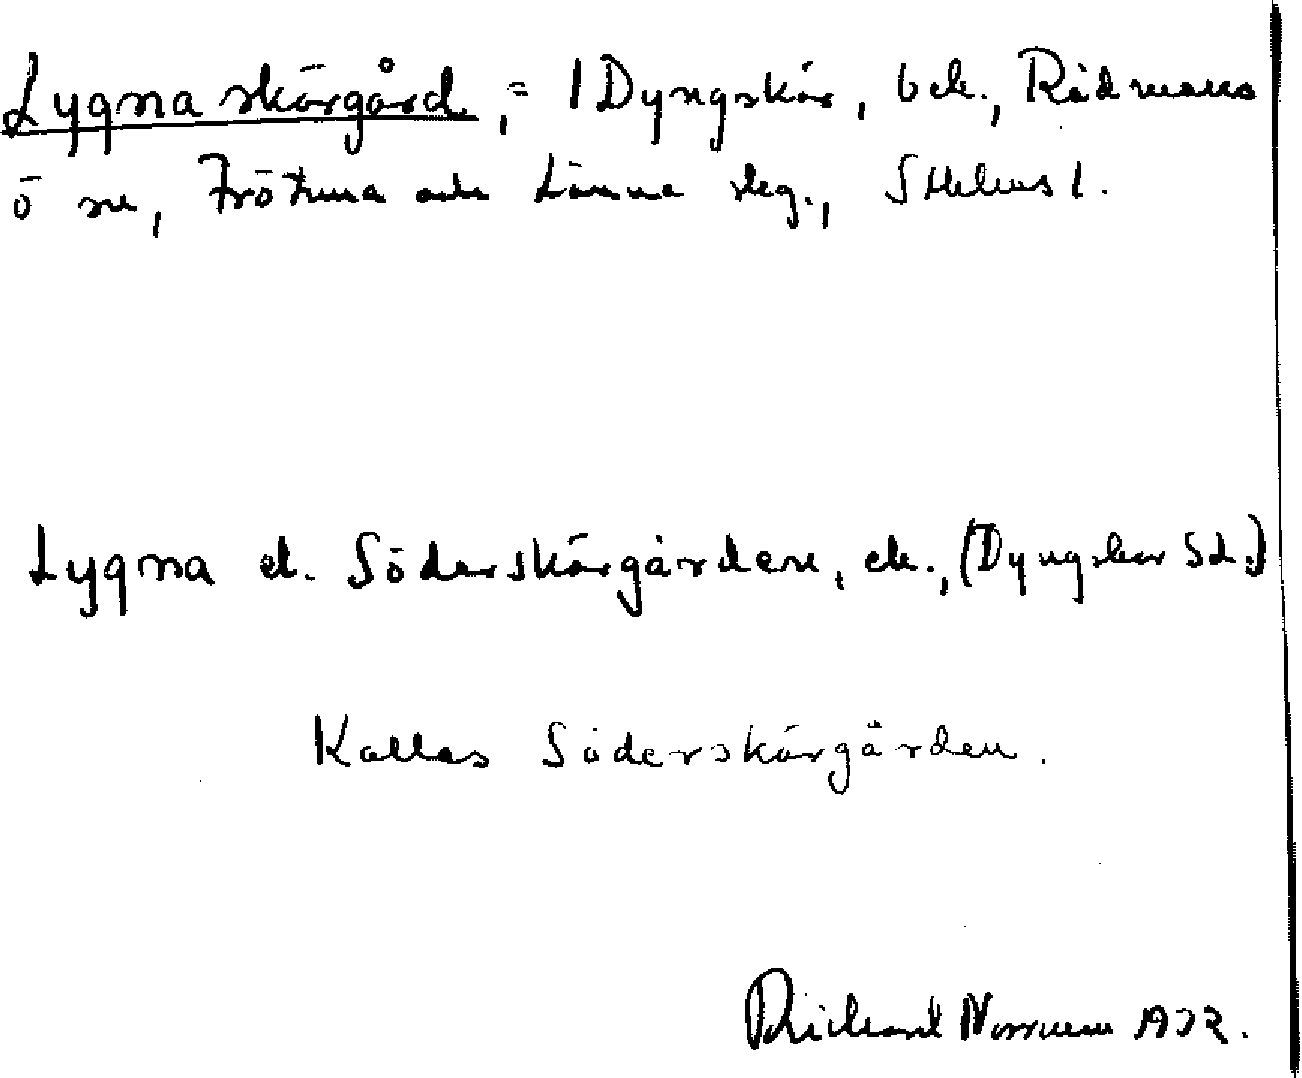 Lygna skärgård, = 1 Dyngskär, beb., Rådmans
ö sn, Frötuna och Länna skg., Sthlms l.
Lygna el. Söderskärgården, ek., (Dyngskär Sd.)
Kallas Söderskärgården.
Richard 1932.